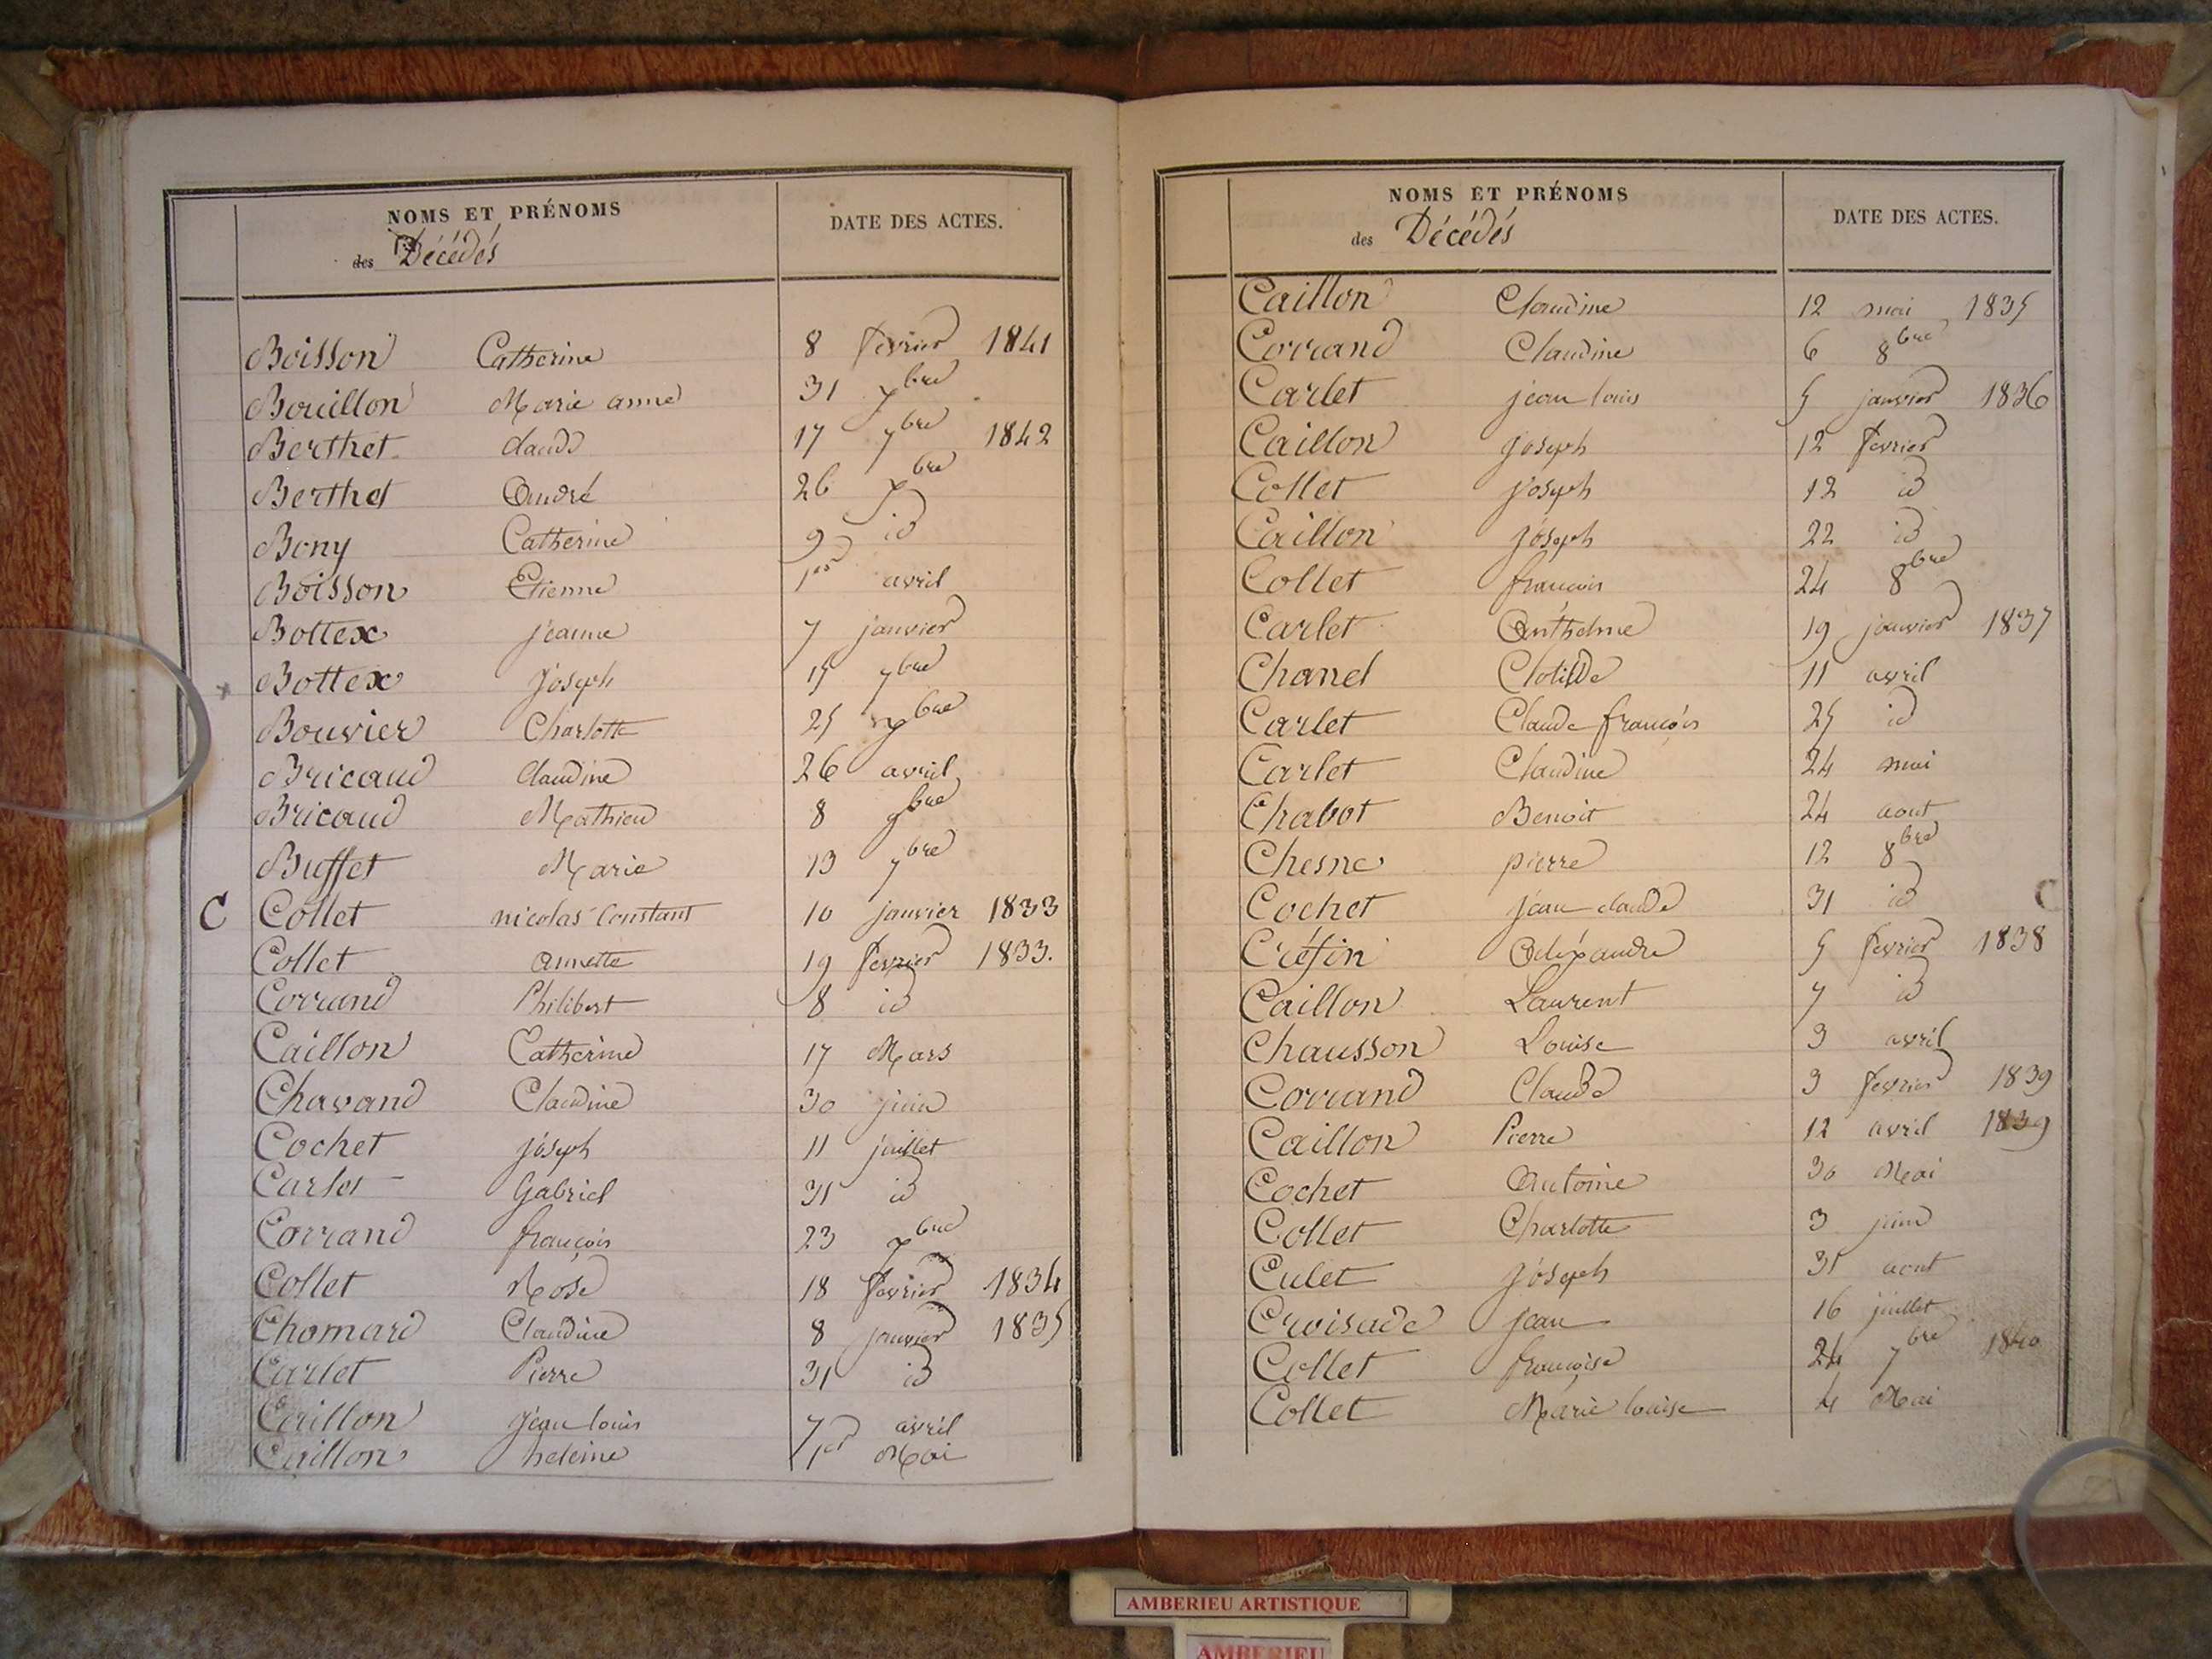 NOMS ET PRÉNOMS
des Décédés
DATE DES ACTES.
Boisson Catherine 8 fevrier 1841
Bouillon Marie anne 31 xbre
Berthet claude 17 7bre 1842
Berthet André 26 xbre
Bony Catherine 9 id
Boisson Etienne 1er avril
Bottex jeanne 7 janvier
Bottex joseph 15 7bre
Bouvier Charlotte 25
Bricaud claudine 26 avril
Bricaud Mathieu 8 9bre
Buffet Marie 13 7bre
C Collet nicolas Constant 10 janvier 1833
Collet annette 19 fevrier 1833.
Corrand Philibert 8 id
Caillon Catherine 17 Mars
Chavand Claudine 30 juin
Cochet joseph 11 juillet
Carlet Gabriel 31 id
Corrand françois 23 xbre
Collet Rose 18 fevrier 1834
Chomard Claudine 8 janvier 1835
Carlet Pierre 31 id
Caillon jean louis 7 avril
Caillon heleine 1er Mai
NOMS ET PRÉNOMS
des Décédés
DATE DES ACTES.
Caillon Claudine 12 mai 1835
Corrand Claudine 6 8bre
Carlet jean louis 5 janvier 1836
Caillon joseph 12 fevrier
Collet joseph 12 id
Caillon joseph 22 id
Collet françois 24 8bre
Carlet Anthelme 19 janvier 1837
Chanel Clotilde 11 avril
Carlet Claude françois 25 id
Carlet Claudine 24 mai
Chabot Benoit 24 aout
Chesne pierre 12 8bre
Cochet jean claude 31 id C
Créfin Aléxandre 5 fevrier 1838
Caillon Laurent 7 id
Chausson Louise 3 avril
Corrand Claude 3 fevrier 1839
Caillon Pierre 12 avril 1839
Cochet Antoine 30 Mai
Collet Charlotte 3 juin
Culet joseph 31 aout
Croisade jean 16 juillet
Collet françoise 24 7bre 1840
Collet Marie louise 4 Mai
AMBERIEU ARTISTIQUE
AMBERIEU